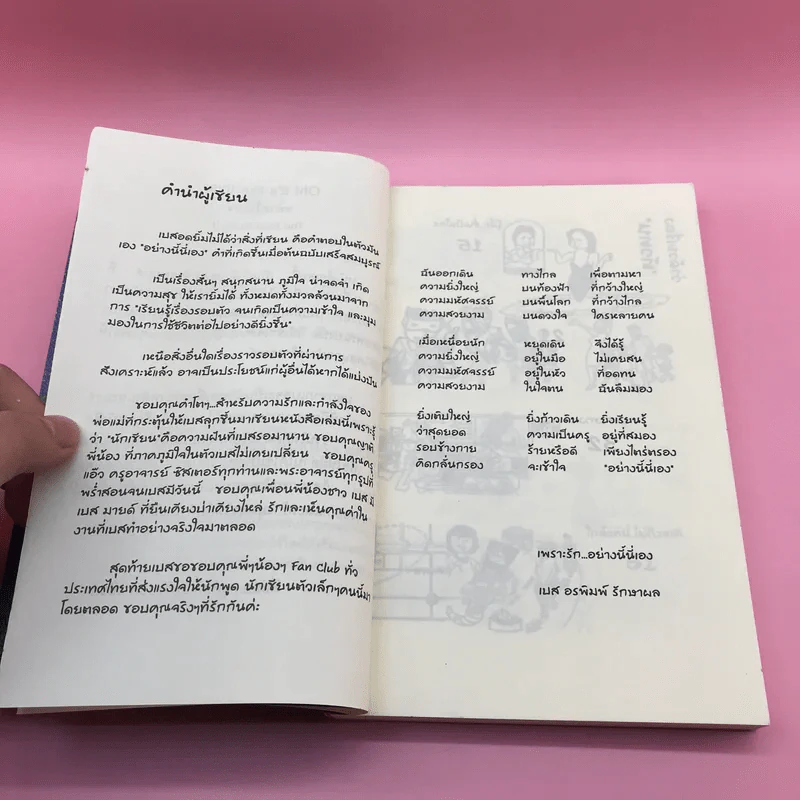 คำนำผู้เขียน
เบสอดยิ้มไม่ได้ว่าสิ่งที่เขียน คือคำตอบในตัวมัน
เอง "อย่างนี้นี่เอง" คำที่เกิดขึ้นเมื่อต้นฉบับเสร็จสมบูรณ์
เป็นเรื่องสั้นๆ สนุกสนาน ภูมิใจ น่าจดจำ เกิด
เป็นความสุข ให้เรายิ้มได้ ทั้งหมดทั้งมวลล้วนมาจาก
การ "เรียนรู้เรื่องรอบตัว จนเกิดเป็นความเข้าใจ และมุม
มองในการใช้ชีวิตต่อไปอย่างดียิ่งขึ้น"
เหนือสิ่งอื่นใดเรื่องราวรอบตัวที่ผ่านการ
สังเคราะห์แล้ว อาจเป็นประโยชน์แก่ผู้อื่นได้หากได้แบ่งปัน
ขอบคุณคำโตๆ...สำหรับความรักและกำลังใจของ
พ่อแม่ที่กระตุ้นให้เบสลุกขึ้นมาเขียนหนังสือเล่มนี้เพราะรู้
ว่า "นักเขียน"คือความฝันที่เบสรอมานาน ขอบคุณญาติ
พี่น้อง ที่ภาคภูมิใจในตัวเบสไม่เคยเปลี่ยน ขอบคุณครู
แอ๊ว ครูอาจารย์ ซิสเตอร์ทุกท่านและพระอาจารย์ทุกรูปที่
พร่ำสอนจนเบสมีวันนี้ ขอบคุณเพื่อนพี่น้องชาว เบส มี
เบส มายด์ ที่ยืนเคียงบ่าเคียงไหล่ รักและเห็นคุณค่าใน
งานที่เบสทำอย่างจริงใจมาตลอด
สุดท้ายเบสขอขอบคุณพี่ๆน้องๆ Fan Club ทั่ว
ประเทศไทยที่ส่งแรงใจให้นักพูด นักเขียนตัวเล็กๆคนนี้มา
โดยตลอด ขอบคุณจริงๆที่รักกันค่ะ
ฉันออกเดิน ทางไกล เพื่อตามหา
ความยิ่งใหญ่ บนท้องฟ้า ที่กว้างใหญ่
ความมหัศจรรย์ บนพื้นโลก ที่กว้างไกล
ความสวยงาม บนดวงใจ ใครหลายคน
เมื่อเหนื่อยนัก หยุดเดิน จึงได้รู้
ความยิ่งใหญ่ อยู่ในมือ ไม่เคยสน
ความมหัศจรรย์ อยู่ในหัว ที่อดทน
ความสวยงาม ในใจตน ฉันลืมมอง
ยิ่งเติบใหญ่ ยิ่งก้าวเดิน ยิ่งเรียนรู้
ว่าสุดยอด ความเป็นครู อยู่ที่สมอง
รอบข้างกาย ร้ายหรือดี เพียงไตร่ตรอง
คิดกลั่นกรอง จะเข้าใจ "อย่างนี้นี่เอง"
เพราะรัก...อย่างนี้นี่เอง
เบส อรพิมพ์ รักษาผล